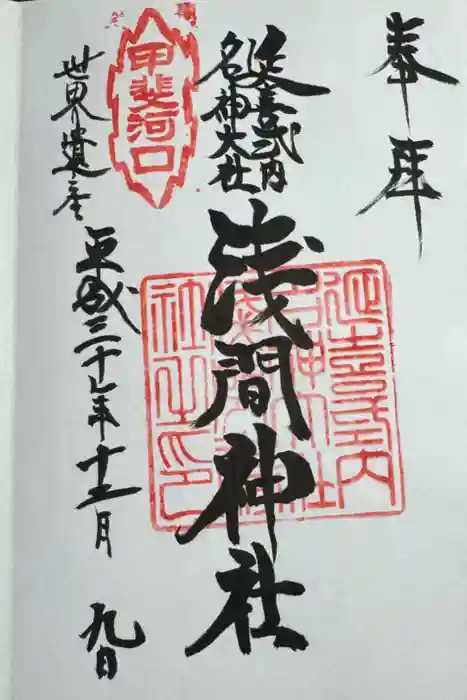 奉拝
延喜式内
名神大社
浅間神社
延喜式内
名神大社
浅間神
社之印
甲斐河口
世界遺産
平成二十七年十二月九日